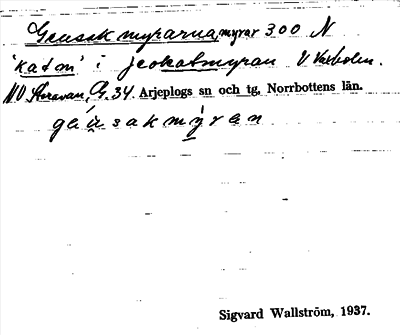 Geusakmyrarna, myrar 300 N
'katom' i Jeokotmyran V Varbolen.
NO Storavan, G. 34 Arjeplogs sn och tg, Norrbottens län.
geúsakmỳren
Sigvard Wallström, 1937.